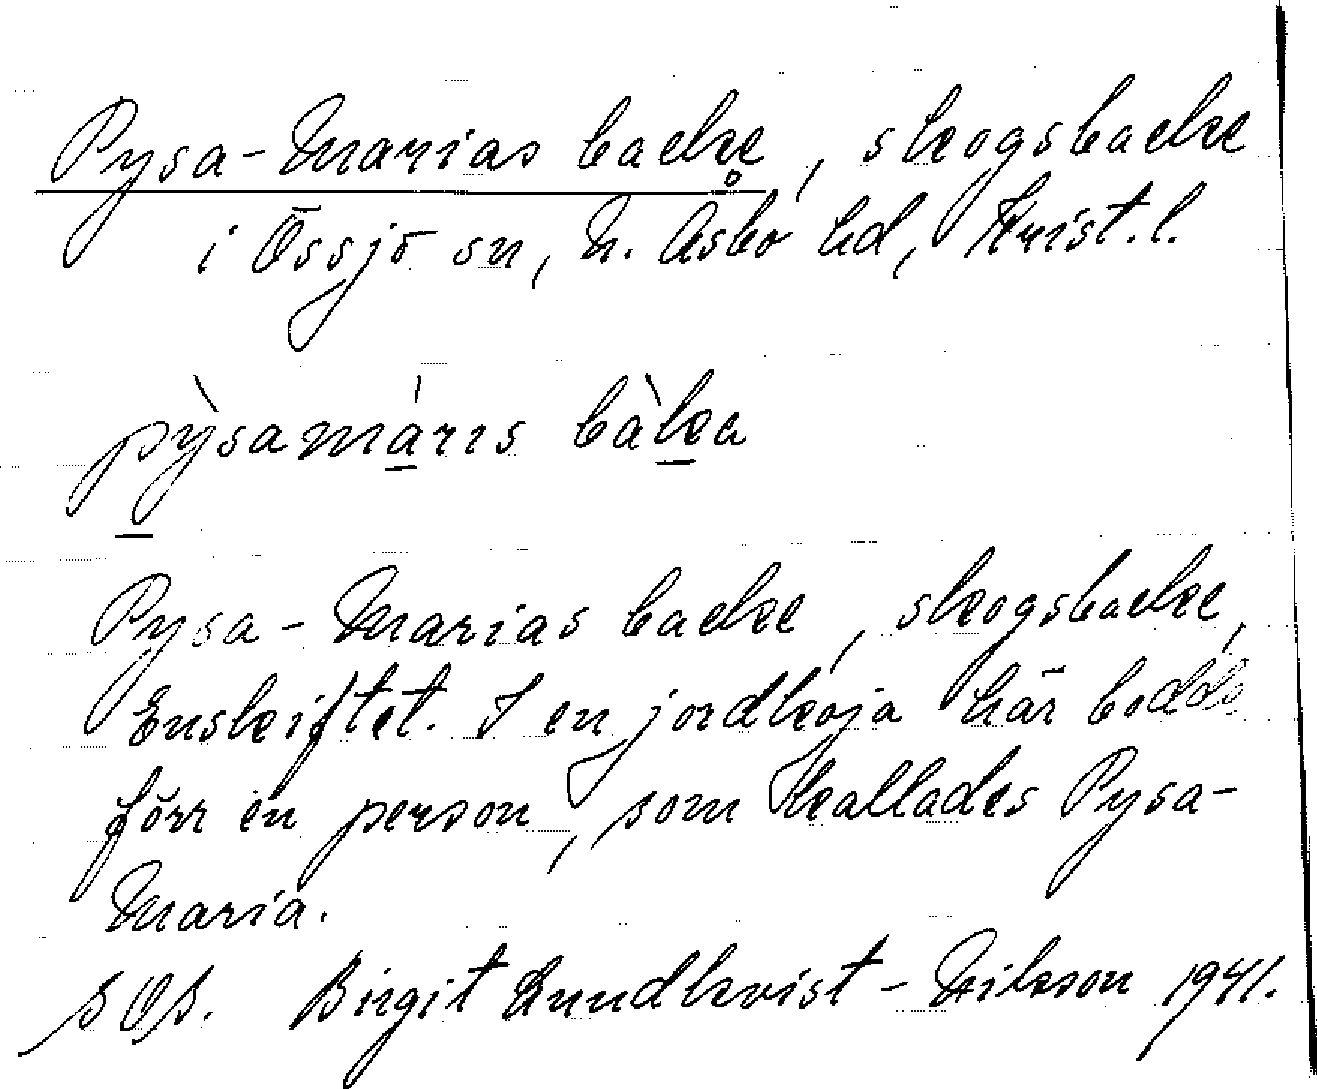 Pysa-Marias backe, skogsbacke
i Össjö sn, N. Åsbo hd, Krist. l.
pỳsamáris bàka
Pysa-Marias backe, skogsbacke,
Enskiftet. I en jordkoja här bodde
förr en person, som kallades Pysa-
Maria.
Birgit Lundkvist-Nilsson 1941.